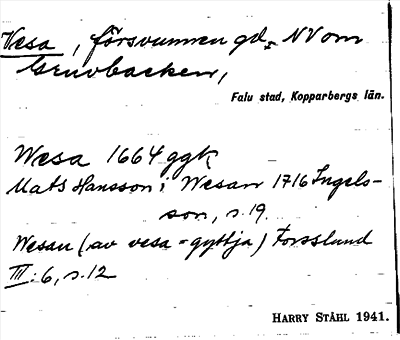 Vesa, försvunnen gd, NV om
Gruvbacken,
Falu stad, Kopparbergs län.
Wesa 1664 ggk
Mats Hansson i Wesan 1716 Ingels-
son, s. 19.
Wesan (av vesa = gyttja) Forsslund
III: 6, s. 12
HARRY STÅHL 1941.